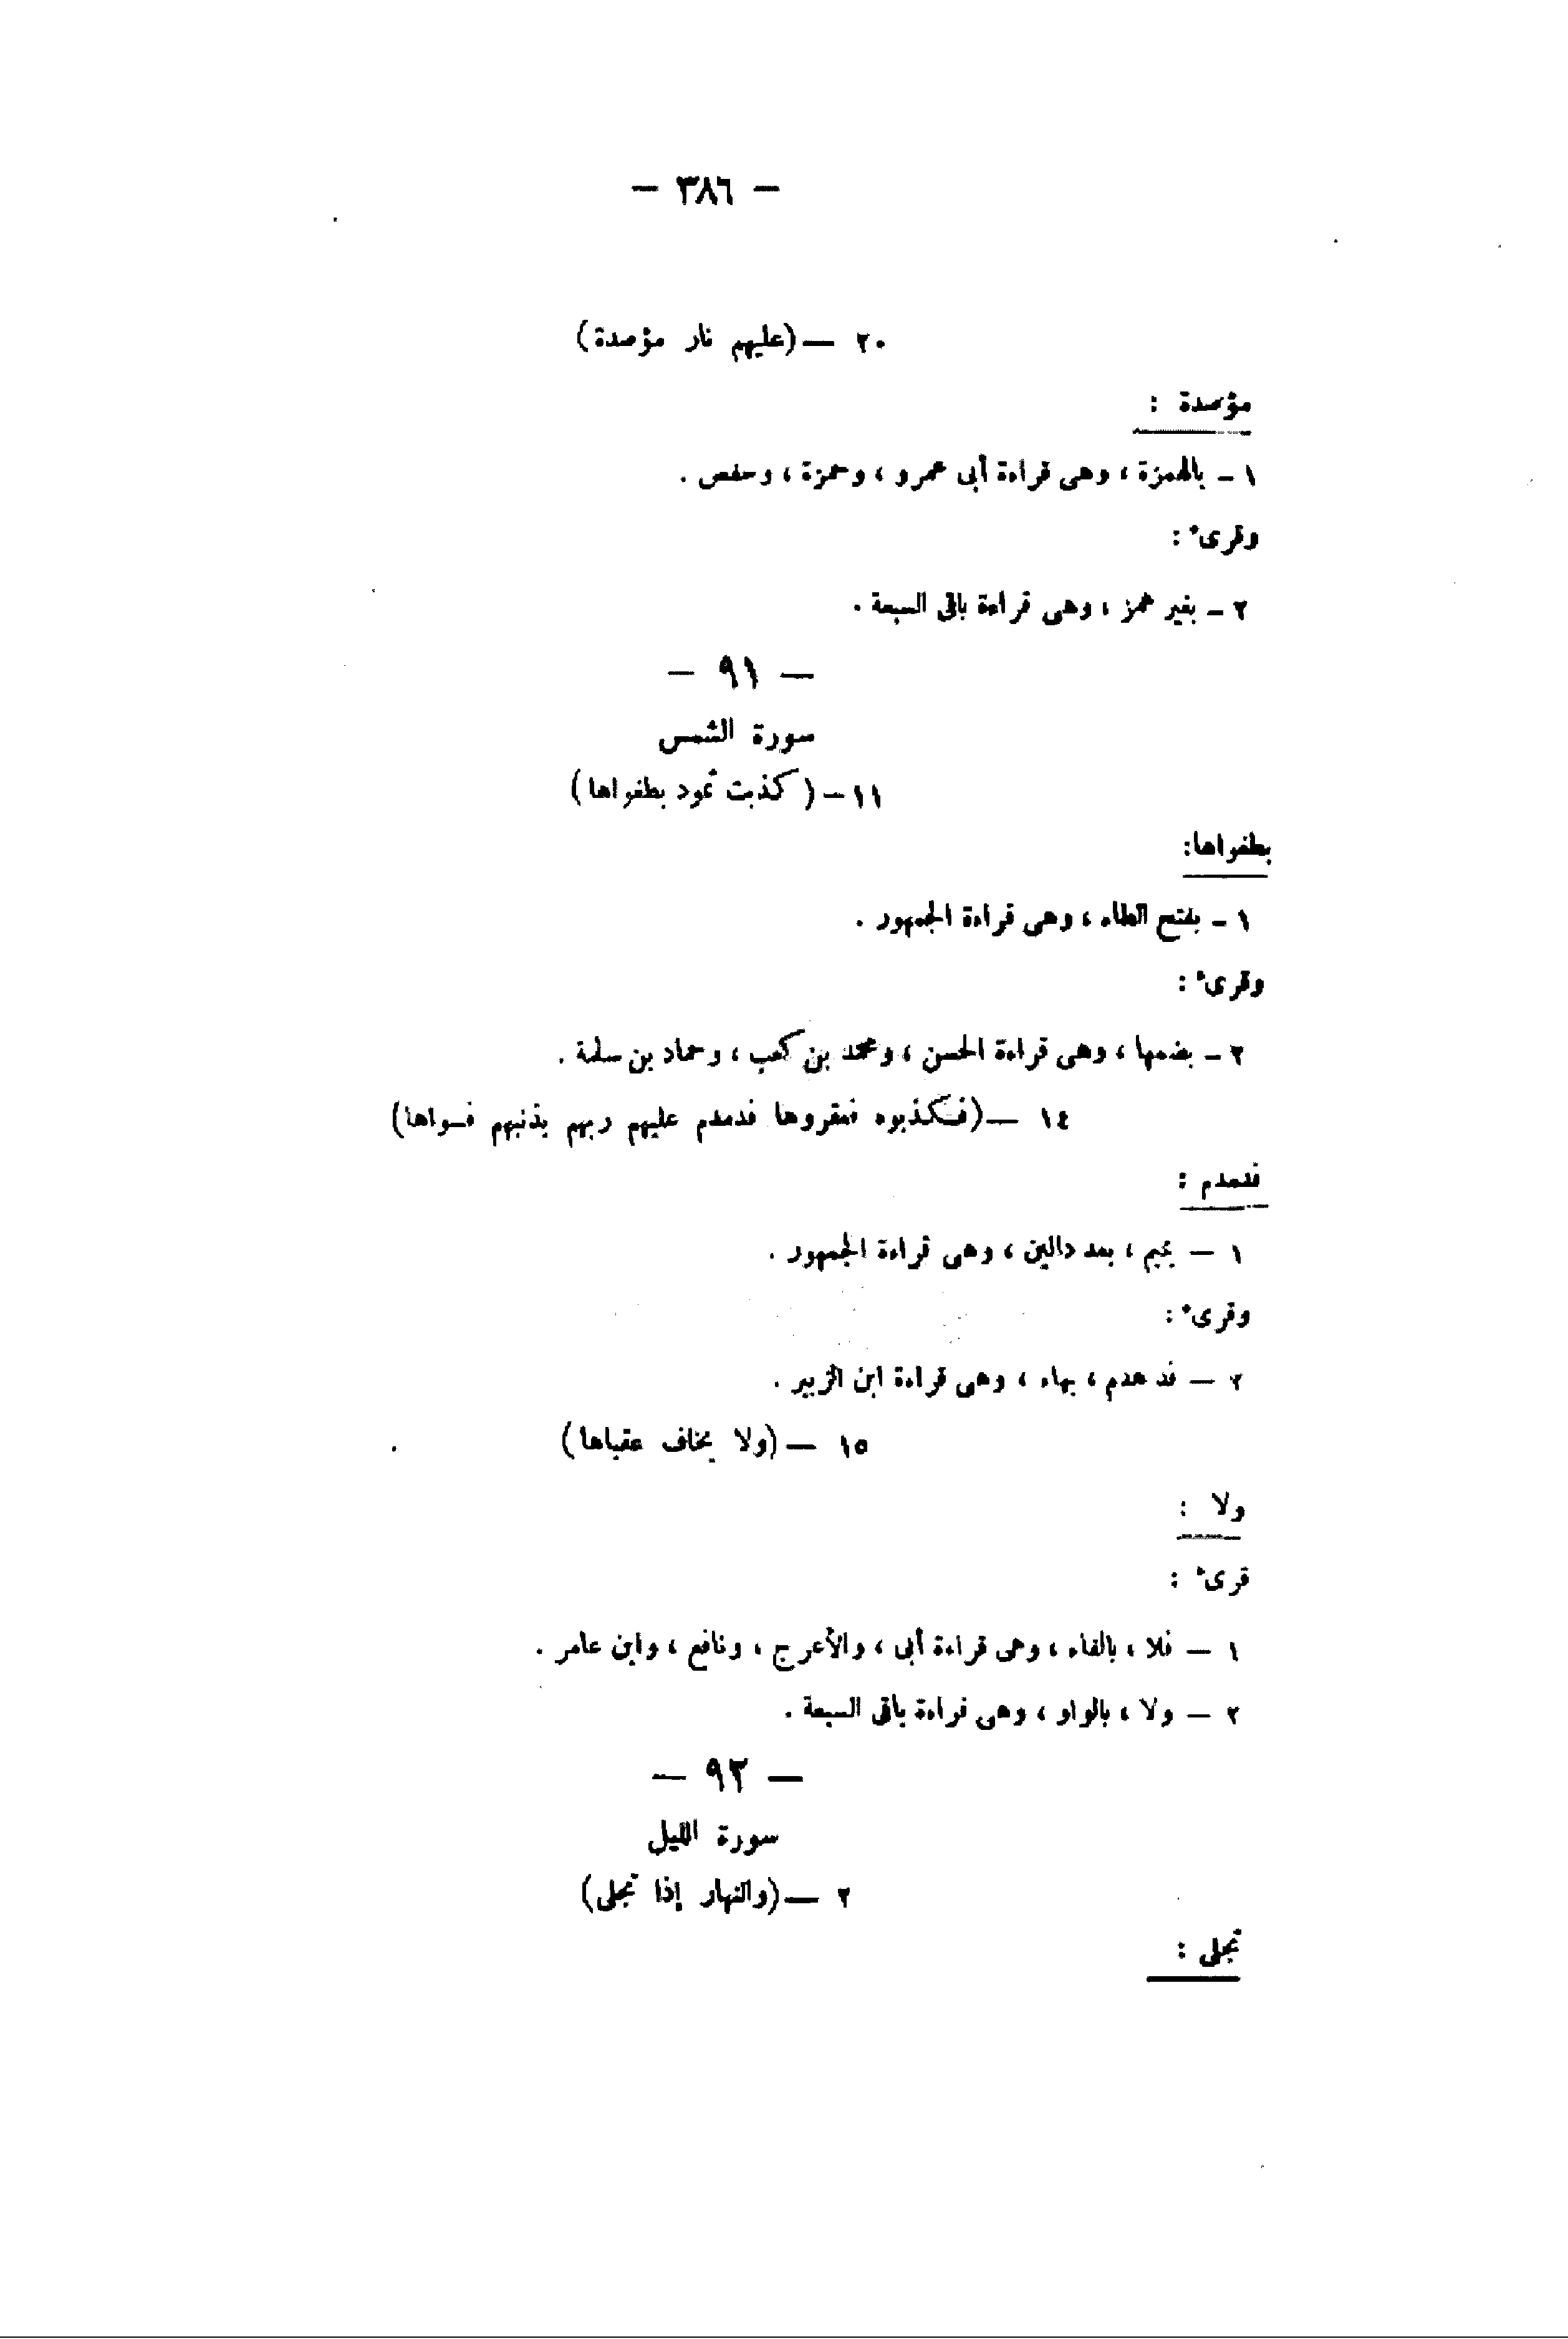 — ٣٨٦ —
٢٠ — (عليهم نار مؤصدة)
مؤصدة :
١ - بالهمزة ، وهى قراءة أبى عمرو ، وحمزة ، وحفص .
وقرىء :
٢ - بغير همز ، وهى قراءة باقى السبعة .
— ٩١ —
سورة الشمس
١١ - (كذبت ثمود بطغواها)
بطغواها:
١ - بفتح الطاء ، وهى قراءة الجمهور .
وقرىء :
٢ - بضمها ، وهى قراءة الحسن ، ومحمد بن كعب ، وحماد بن سلمة .
١٤ — (فكذبوه فعقروها فدمدم عليهم ربهم بذنبهم فسواها)
فدمدم :
١ — بميم ، بعد دالين ، وهى قراءة الجمهور .
وقرىء :
٢ — فدهدم ، بهاء ، وهى قراءة ابن الزبير .
١٥ — (ولا يخاف عقباها)
ولا :
قرىء :
١ — فلا ، بالفاء ، وهى قراءة أبى ، والأعرج ، ونافع ، وابن عامر .
٢ — ولا ، بالواو ، وهى قراءة باقى السبعة .
— ٩٢ —
سورة الليل
٢ — (والنهار إذا تجلى)
تجلى :